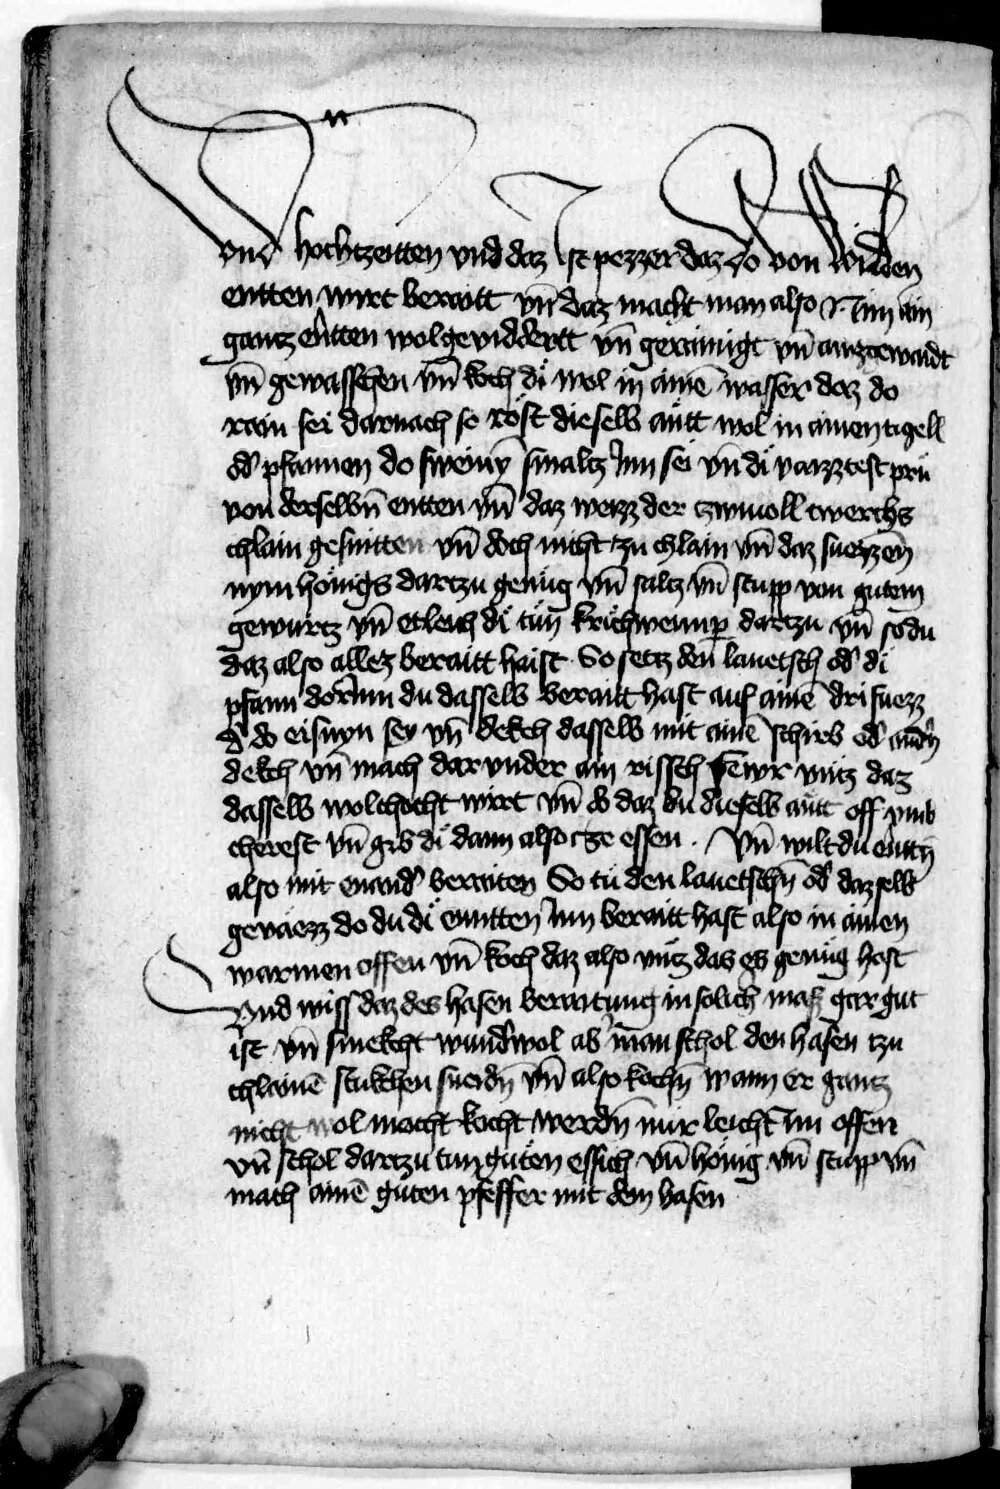 vnd hochtzeitten vnd daz ist pezzer daz do von wilden
entten wirt beraitt vn̄ daz macht man also Nim ain
gantz entten wol geviddertt vn̄ gerainigt vn̄ auzgewaidt
vn̄ gewasschen vn̄ koch di wol in ainē wasser daz do
rain sei darnach so röst dieselb antt wol in ainen tigell
od' pfannen do sweiny smaltz inn sei vn̄ di vaizztest prü
von derselbn̄ entten vn̄ daz weizz der tzwivoll twerchs
chlain gesnitten vn̄ doch nicht zu chlain vn̄ daz suezzen
nym hönigs dartzu genüg vn̄ saltz vn̄ stupp von gutem
gewürtz vn̄ etleich di tün krichweinp̄ dartzu vn̄ so du
daz also allez beraitt haist So setz den lauetsch od' di
pfann dorinn du dasselb beraitt hast auf ainē drifuezz
d' do eisnyn sey vn̄ dekch dasselb mit ainē schirb od' and'n
dekch vn̄ mach darvnder ain rissch fewr vntz daz
dasselb wolchocht wirt vn̄ ob daz du dieselb antt oft vmb
cherest vn̄ gib di dann also tze essen . Vn̄ wilt du entn̄
also mit enand' beraiten So tü den lauetschn̄ od' dazselb
gevaezz do du di enntten inn beraitt hast also in ainen
warmen offen vn̄ koch daz also vntz das es genüg hast
Vnd wiss daz des hasen beraitung in solich mass gar gut
ist vn̄ smekcht wund'wol ab' man schol den hasen tzu
chlainē stukchen sneidn̄ vn̄ also kochn̄ wann er gantz
nicht wol mocht kocht werdn̄ nür leicht im offen
vn̄ schol dartzu tun güten essich vn̄ hönig vn̄ stupp vn̄
mach ainē güten pfeffer mit dem hasen